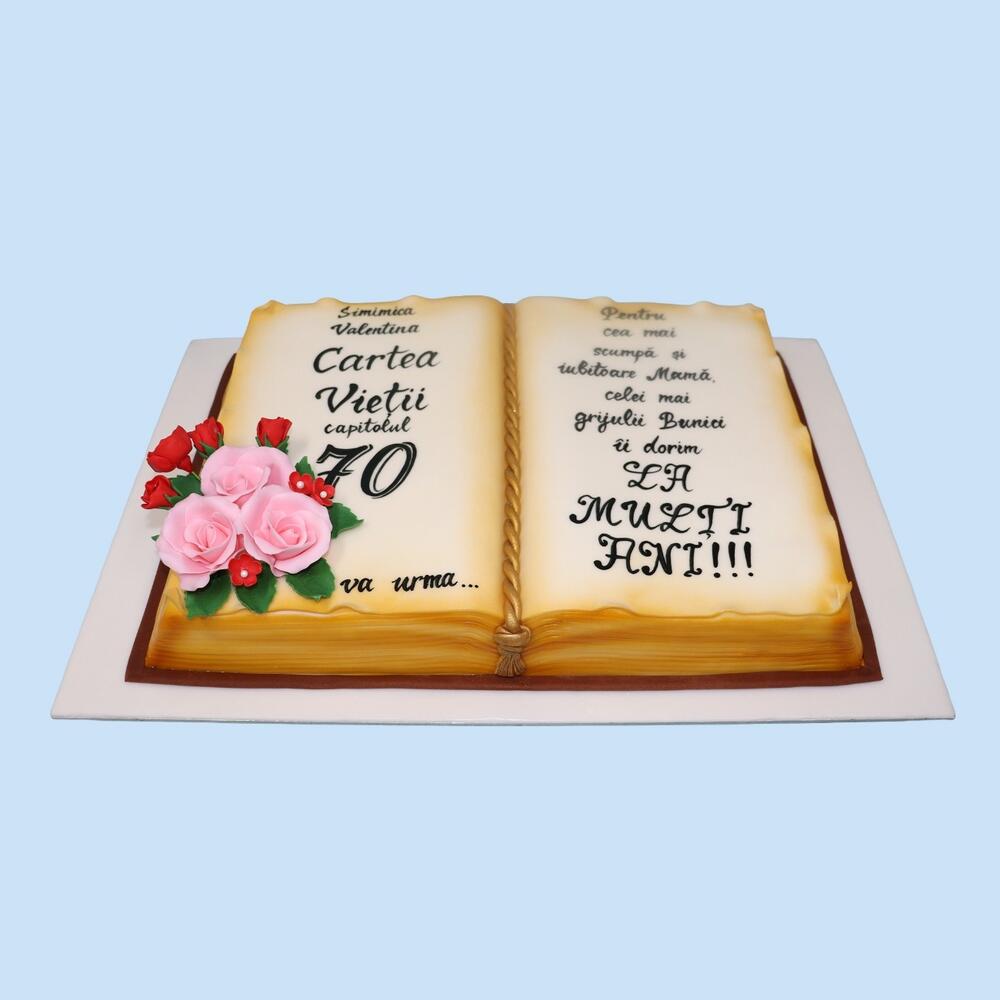 Simimica
Valentina
Cartea
Vieții
capitolul
70
va urma...
Pentru
cea mai
scumpă și
iubitoare Mamă,
celei mai
grijulii Bunici
îi dorim
LA
MULȚI
ANI!!!